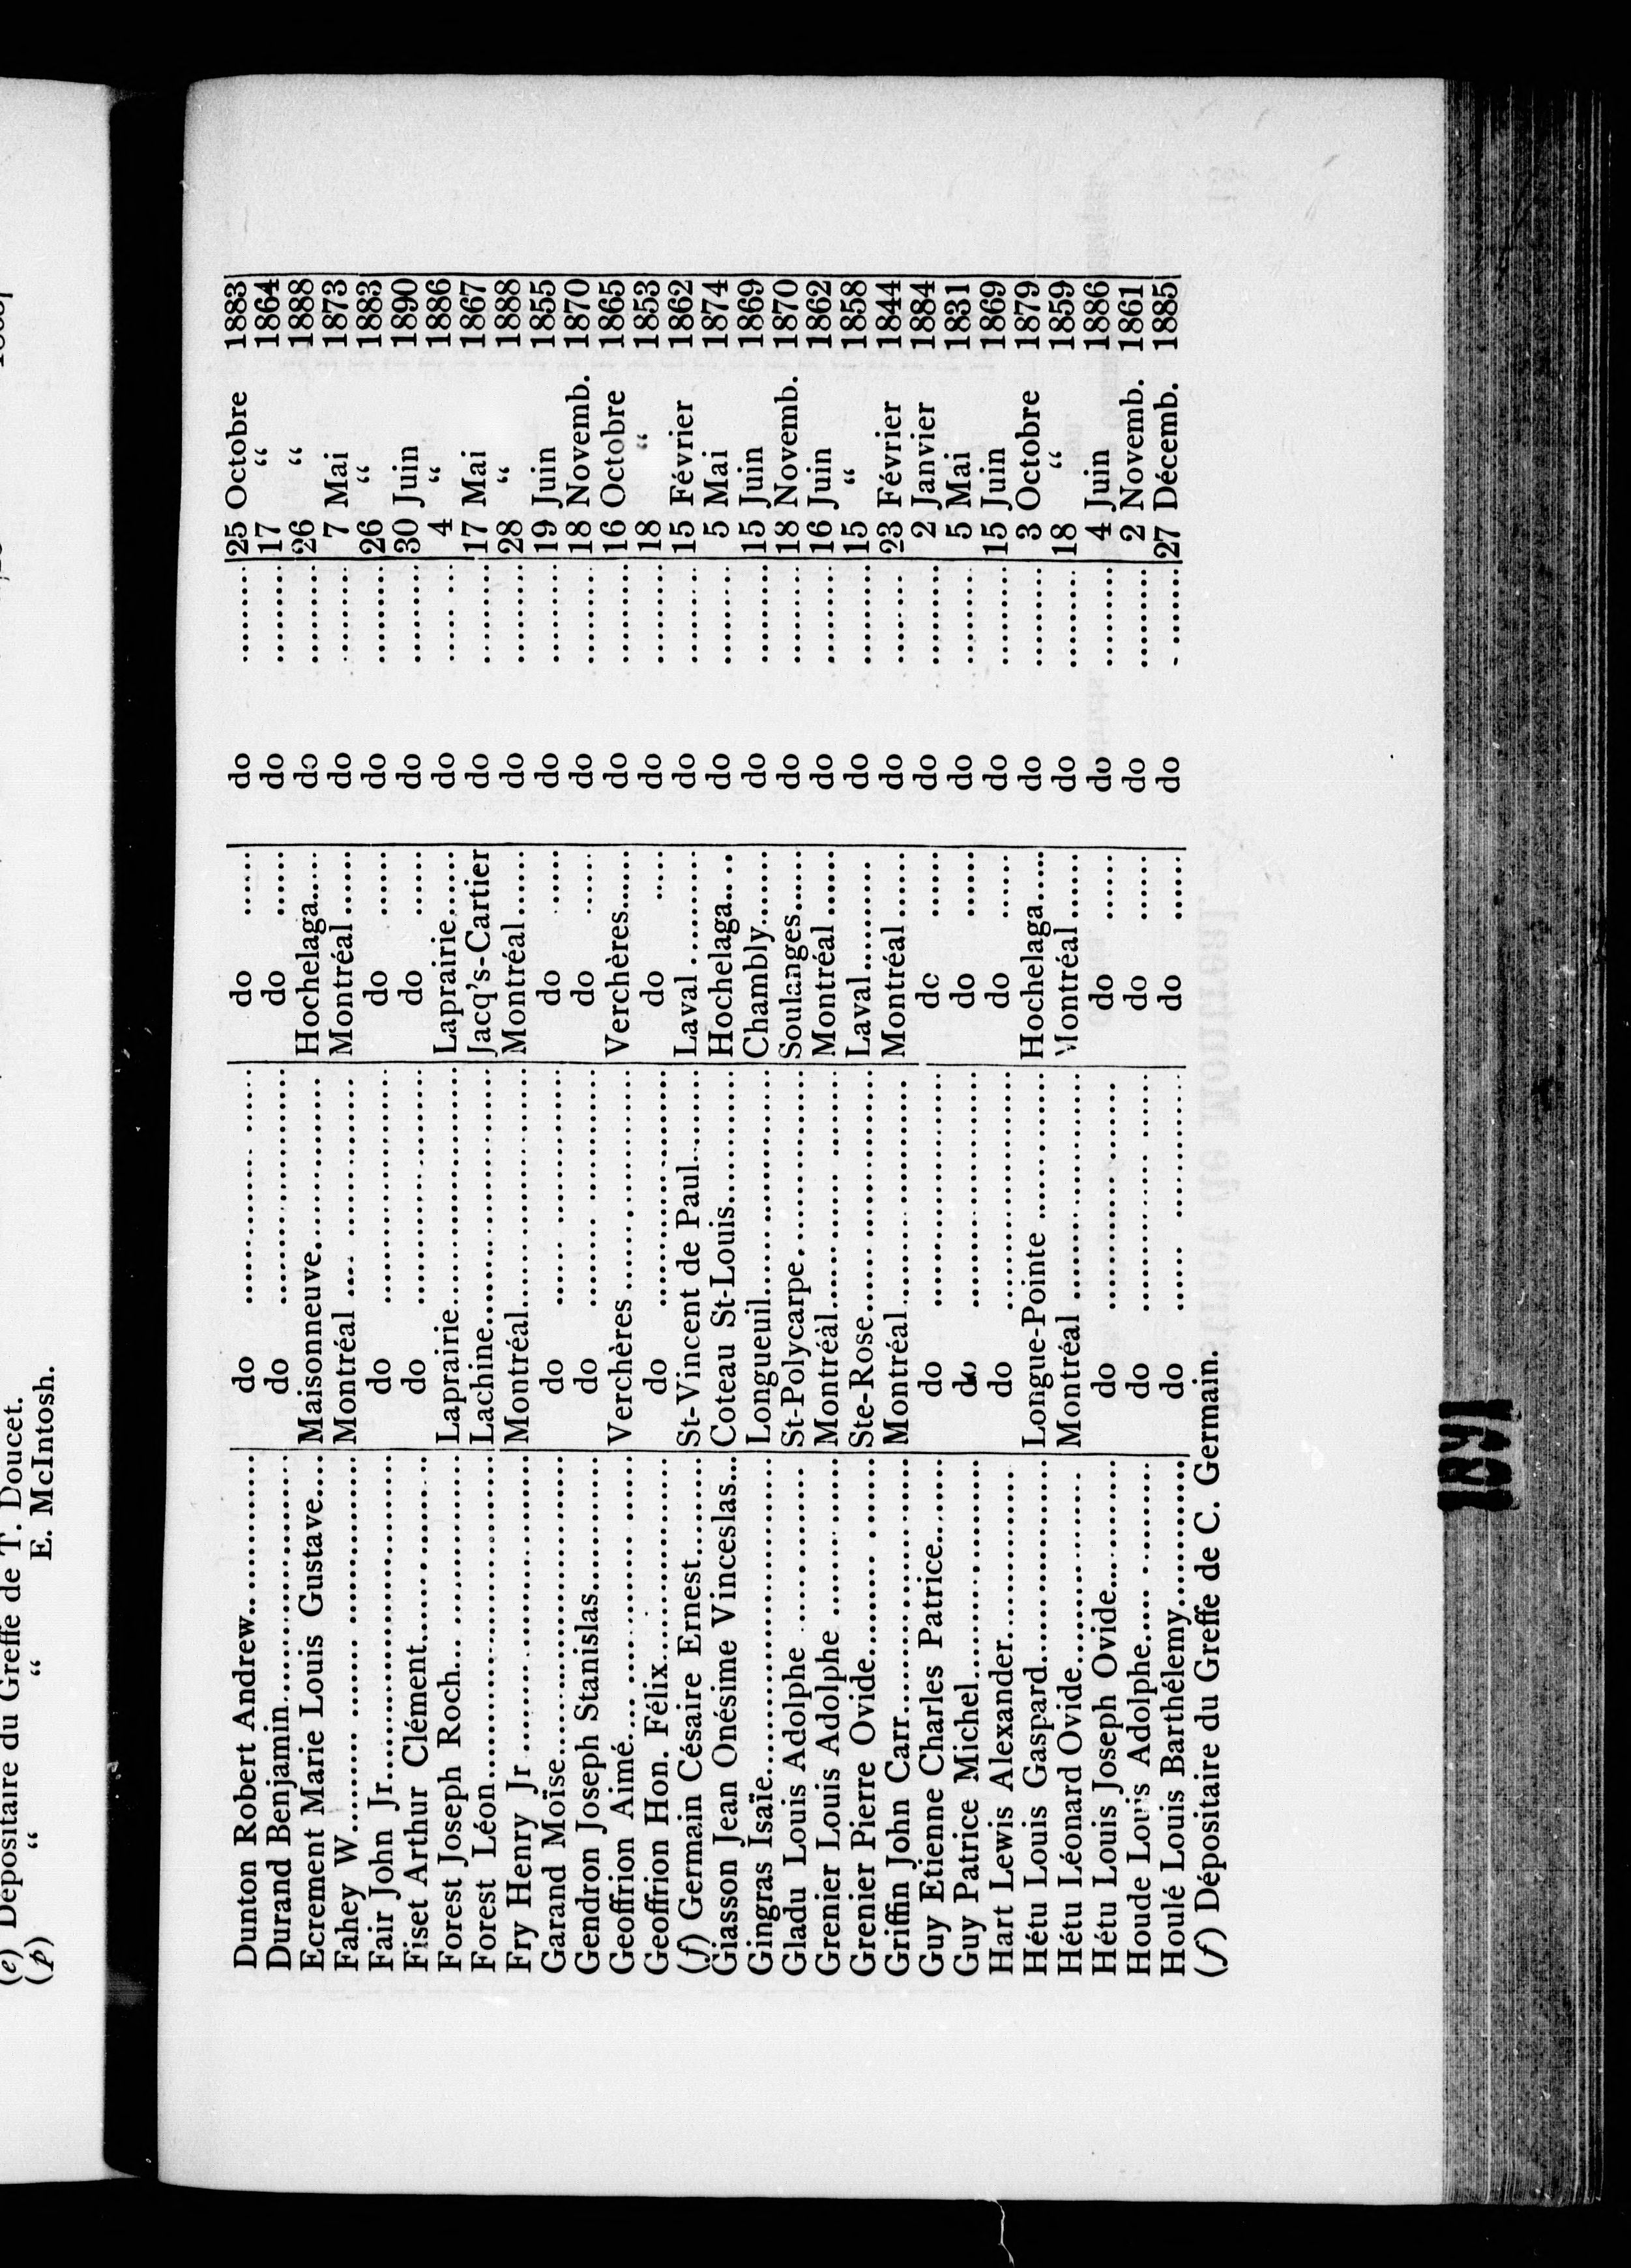 (e) Dépositaire du Greffe de T. Doucet.
(p) “ “ E. McIntosh.
Dunton Robert Andrew do do do 25 Octobre 1883
Durand Benjamin do do do 17 “ 1864
Ecrement Marie Louis Gustave Maisonneuve Hochelaga do 26 “ 1888
Fahey W Montréal Montréal do 7 Mai 1873
Fair John Jr do do do 26 “ 1883
Fiset Arthur Clément do do do 30 Juin 1890
Forest Joseph Roch Laprairie Laprairie do 4 “ 1886
Forest Léon Lachine Jacq's-Cartier do 17 Mai 1867
Fry Henry Jr Montréal Montréal do 28 “ 1888
Garand Moïse do do do 19 Juin 1855
Gendron Joseph Stanislas do do do 18 Novemb. 1870
Geoffrion Aimé Verchères Verchères do 16 Octobre 1865
Geoffrion Hon. Félix do do do 18 “ 1853
(f) Germain Césaire Ernest St-Vincent de Paul Laval do 15 Février 1862
Giasson Jean Onésime Vinceslas Coteau St-Louis Hochelaga do 5 Mai 1874
Gingras Isaïe Longueuil Chambly do 15 Juin 1869
Gladu Louis Adolphe St-Polycarpe Soulanges do 18 Novemb. 1870
Grenier Louis Adolphe Montréal Montréal do 16 Juin 1862
Grenier Pierre Ovide Ste-Rose Laval do 15 “ 1858
Griffin John Carr Montréal Montréal do 23 Février 1844
Guy Etienne Charles Patrice do do do 2 Janvier 1884
Guy Patrice Michel do do do 5 Mai 1831
Hart Lewis Alexander do do do 15 Juin 1869
Hétu Louis Gaspard Longue-Pointe Hochelaga do 3 Octobre 1879
Hétu Léonard Ovide Montréal Montréal do 18 “ 1859
Hétu Louis Joseph Ovide do do do 4 Juin 1886
Houde Louis Adolphe do do do 2 Novemb. 1861
Houlé Louis Barthélemy do do do 27 Décemb. 1885
(f) Dépositaire du Greffe de C. Germain.
1891